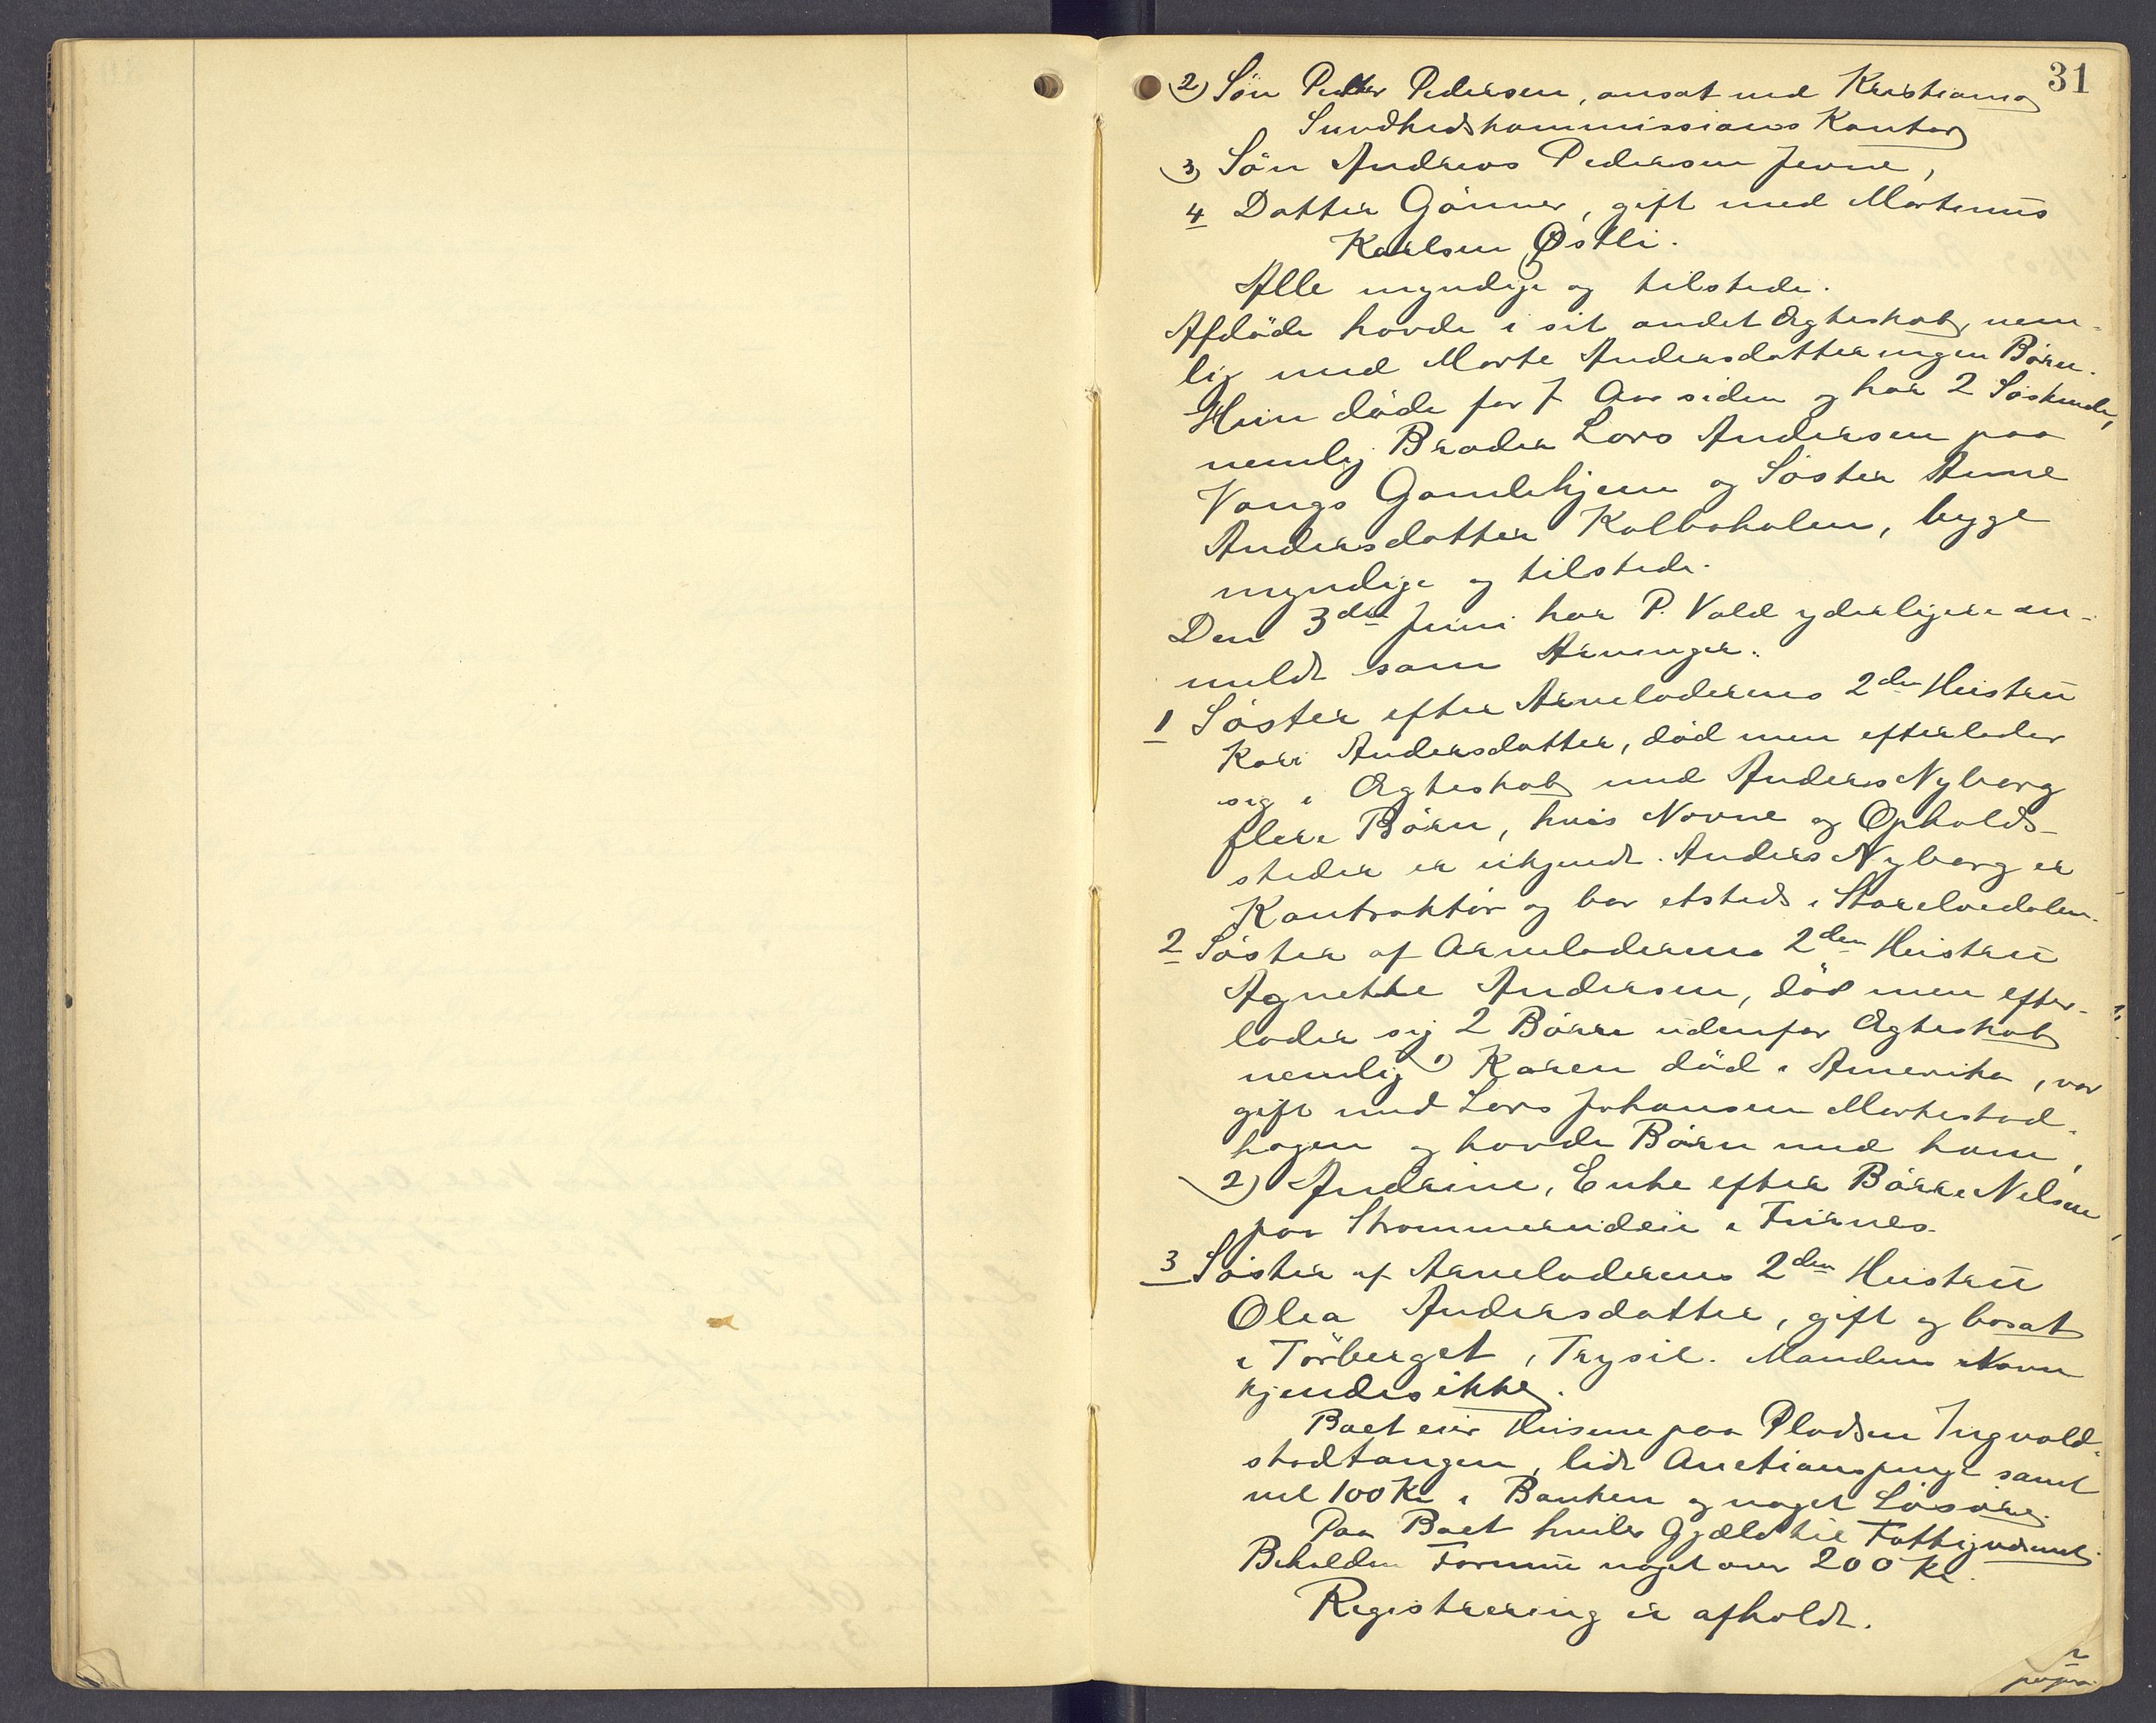 31
2) Søn Petter Pedersen, ansat ved Kristiania
Sundhedskommissions Kontor
3) Søn Andreas Pedersen Jevne,
4 Datter Gønner, gift med Martinus
Karlsen Østli.
Alle myndige og tilstede.
Afdøde havde i sit andet Ægteskab, nem-
lig med Marte Andersdatter ingen Børn.
Hun døde for 7 Aar siden og har 2 Søskende,
nemlig Broder Lars Andersen paa
Vangs Gamlehjem og Søster Anne
Andersdatter Kolboholen, begge
myndige og tilstede.
Den 3die Juni har P. Vold yderligere an-
meldt som Arvinger:
1 Søster efter Arveladerens 2den Hustru
Kari Andersdatter, død men efterlader
sig i Ægteskab med Anders Nyborg
flere Børn, hvis Navne og Opholds-
steder er ukjendt. Anders Nyborg er
Kontraktør og bor etsteds i Storelvedalen.
2 Søster af Arveladerens 2den Hustru
Agnethe Andersen, død men efter-
lader sig 2 Børn udenfor Ægteskab
nemlig 1) Karen død i Amerika, var
gift med Lars Johansen Martestad-
hagen og havde Børn med ham,
2) Andrine, Enke efter Børre Nelsen
paa Strommerudeie i Furnes.
3 Søster af Arveladerens 2den Hustru
Olea Andersdatter, gift og bosat
i Tørberget, Trysil. Mandens Navn
kjendes ikke.
Boet eier Husene paa Pladsen Ingvold-
stadtangen, lidt Auctionspenge samt
vel 100 Kr i Banken og noget Løsøre.
Paa Boet hviler Gjæld til Fattigvæsenet.
Beholden Formue noget over 200 Kr.
Registrering er afholdt.